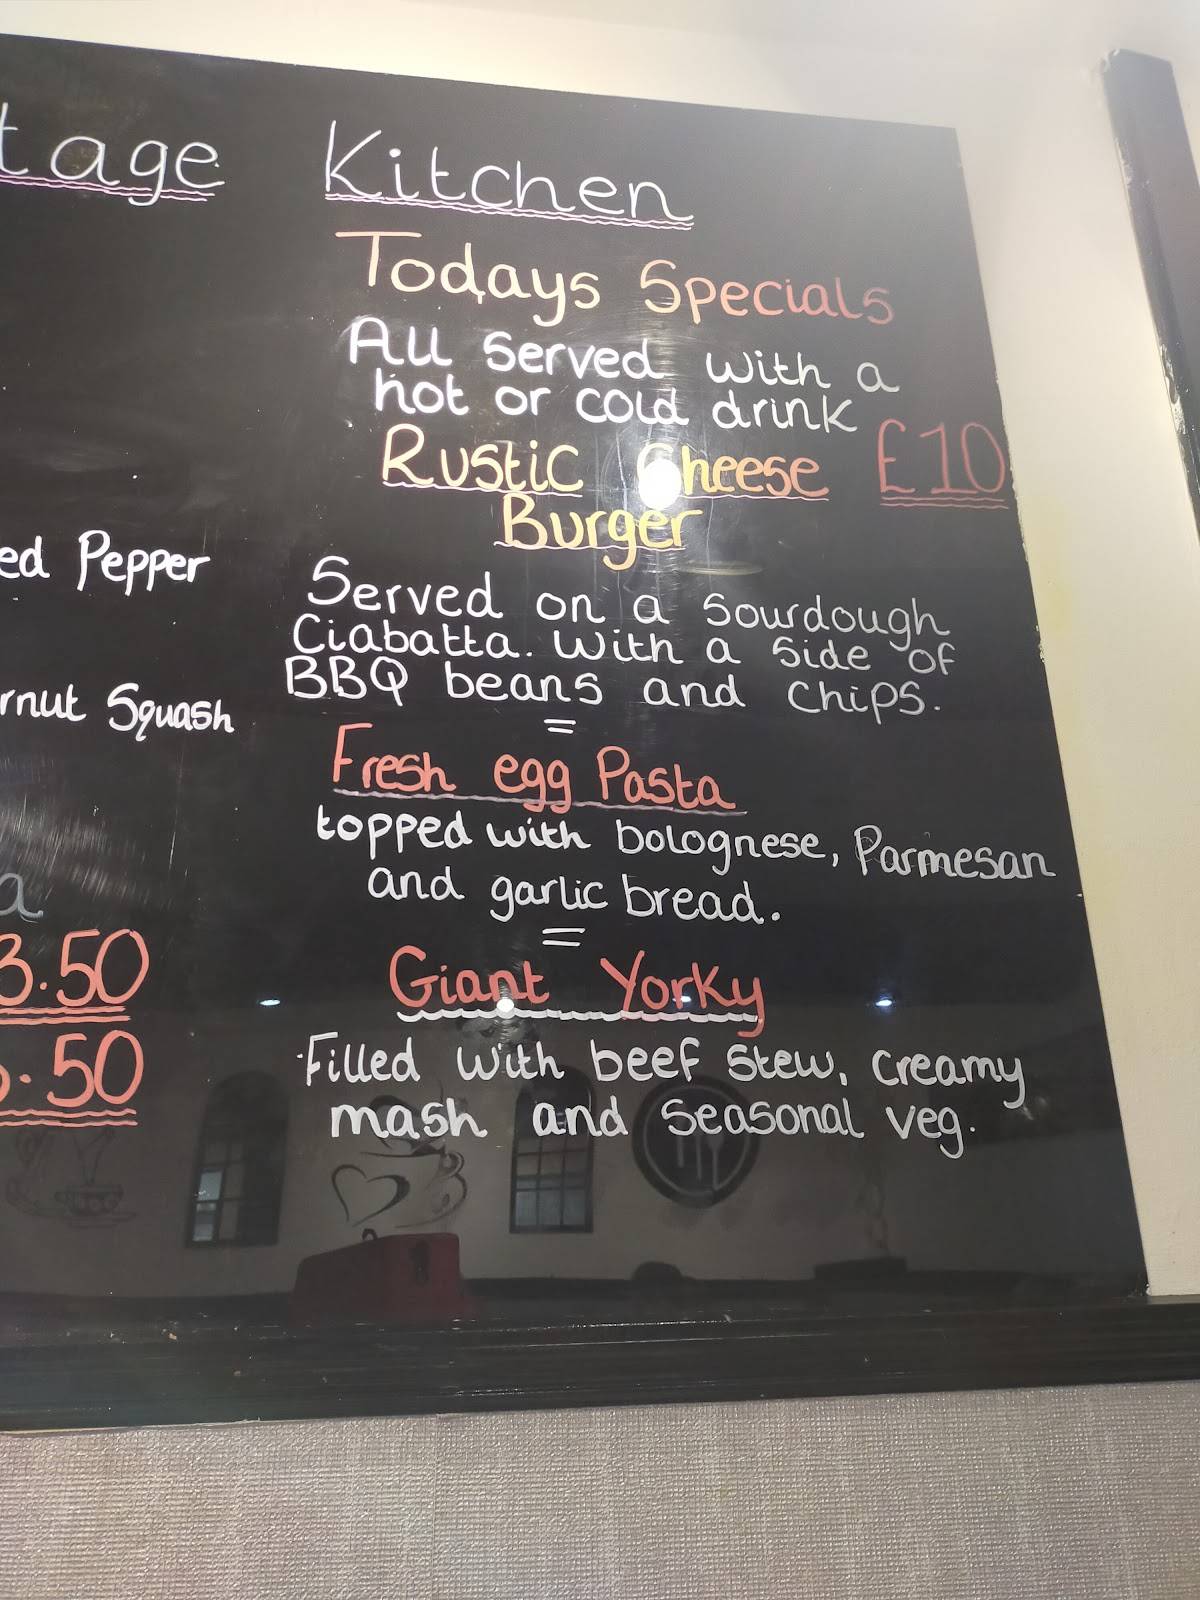 tage Kitchen
Todays Specials
All served with a
hot or cold drink
£10
Rustic Cheese
Burger
Served on a sourdough
Ciabatta. With a side of
BBQ beans and chips.
=
Fresh egg Pasta
topped with bolognese, Parmesan
and garlic bread.
=
Giant Yorky
Filled with beef stew, creamy
mash and seasonal veg.
ed Pepper
rnut Squash
a
3.50
.50